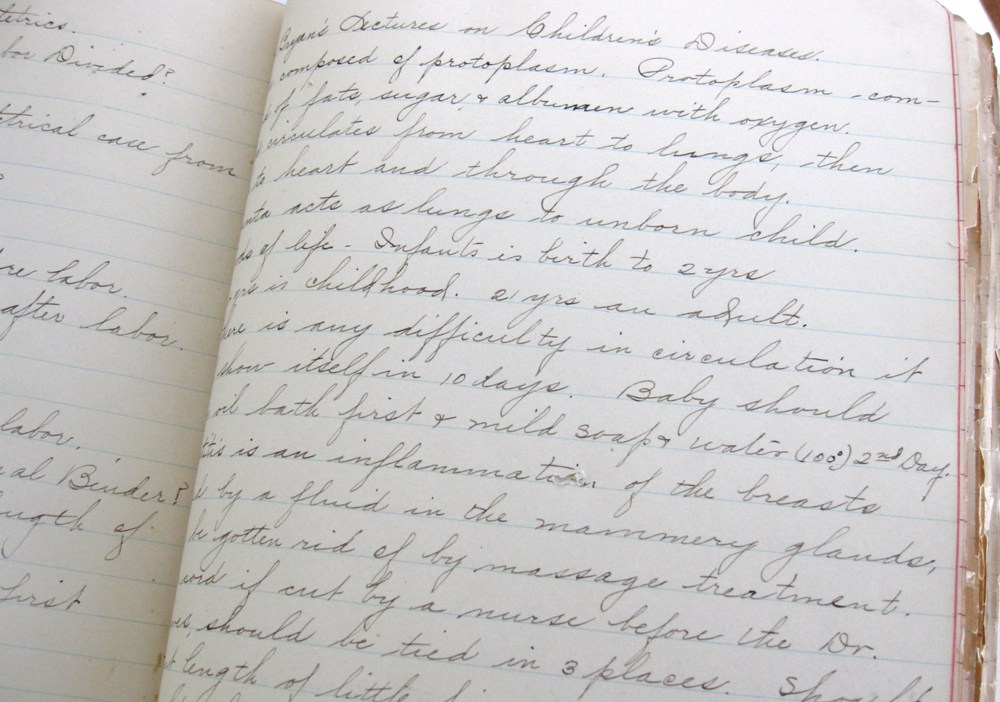 tetrics.
bor Divided?
etrical case from
?
re labor.
after labor.
labor.
al Binder?
ength of
first
Cryan's Lectures on Children's Diseases.
composed of protoplasm. Protoplasm -com-
of fats, sugar, & albumen with oxygen.
circulates from heart to lungs, then
to heart and through the body.
nta acts as lungs to unborn child.
ds of life - Infants is birth to 2 yrs
yrs is childhood. 21 yrs an adult.
ere is any difficulty in circulation it
show itself in 10 days. Baby should
oil bath first & mild soap & water (100°) 2nd Day.
titis is an inflammation of the breasts
d by a fluid in the mammery glands,
be gotten rid of by massage treatment.
cord if cut by a nurse before the Dr.
es, should be tied in 3 places. Should
t length of little